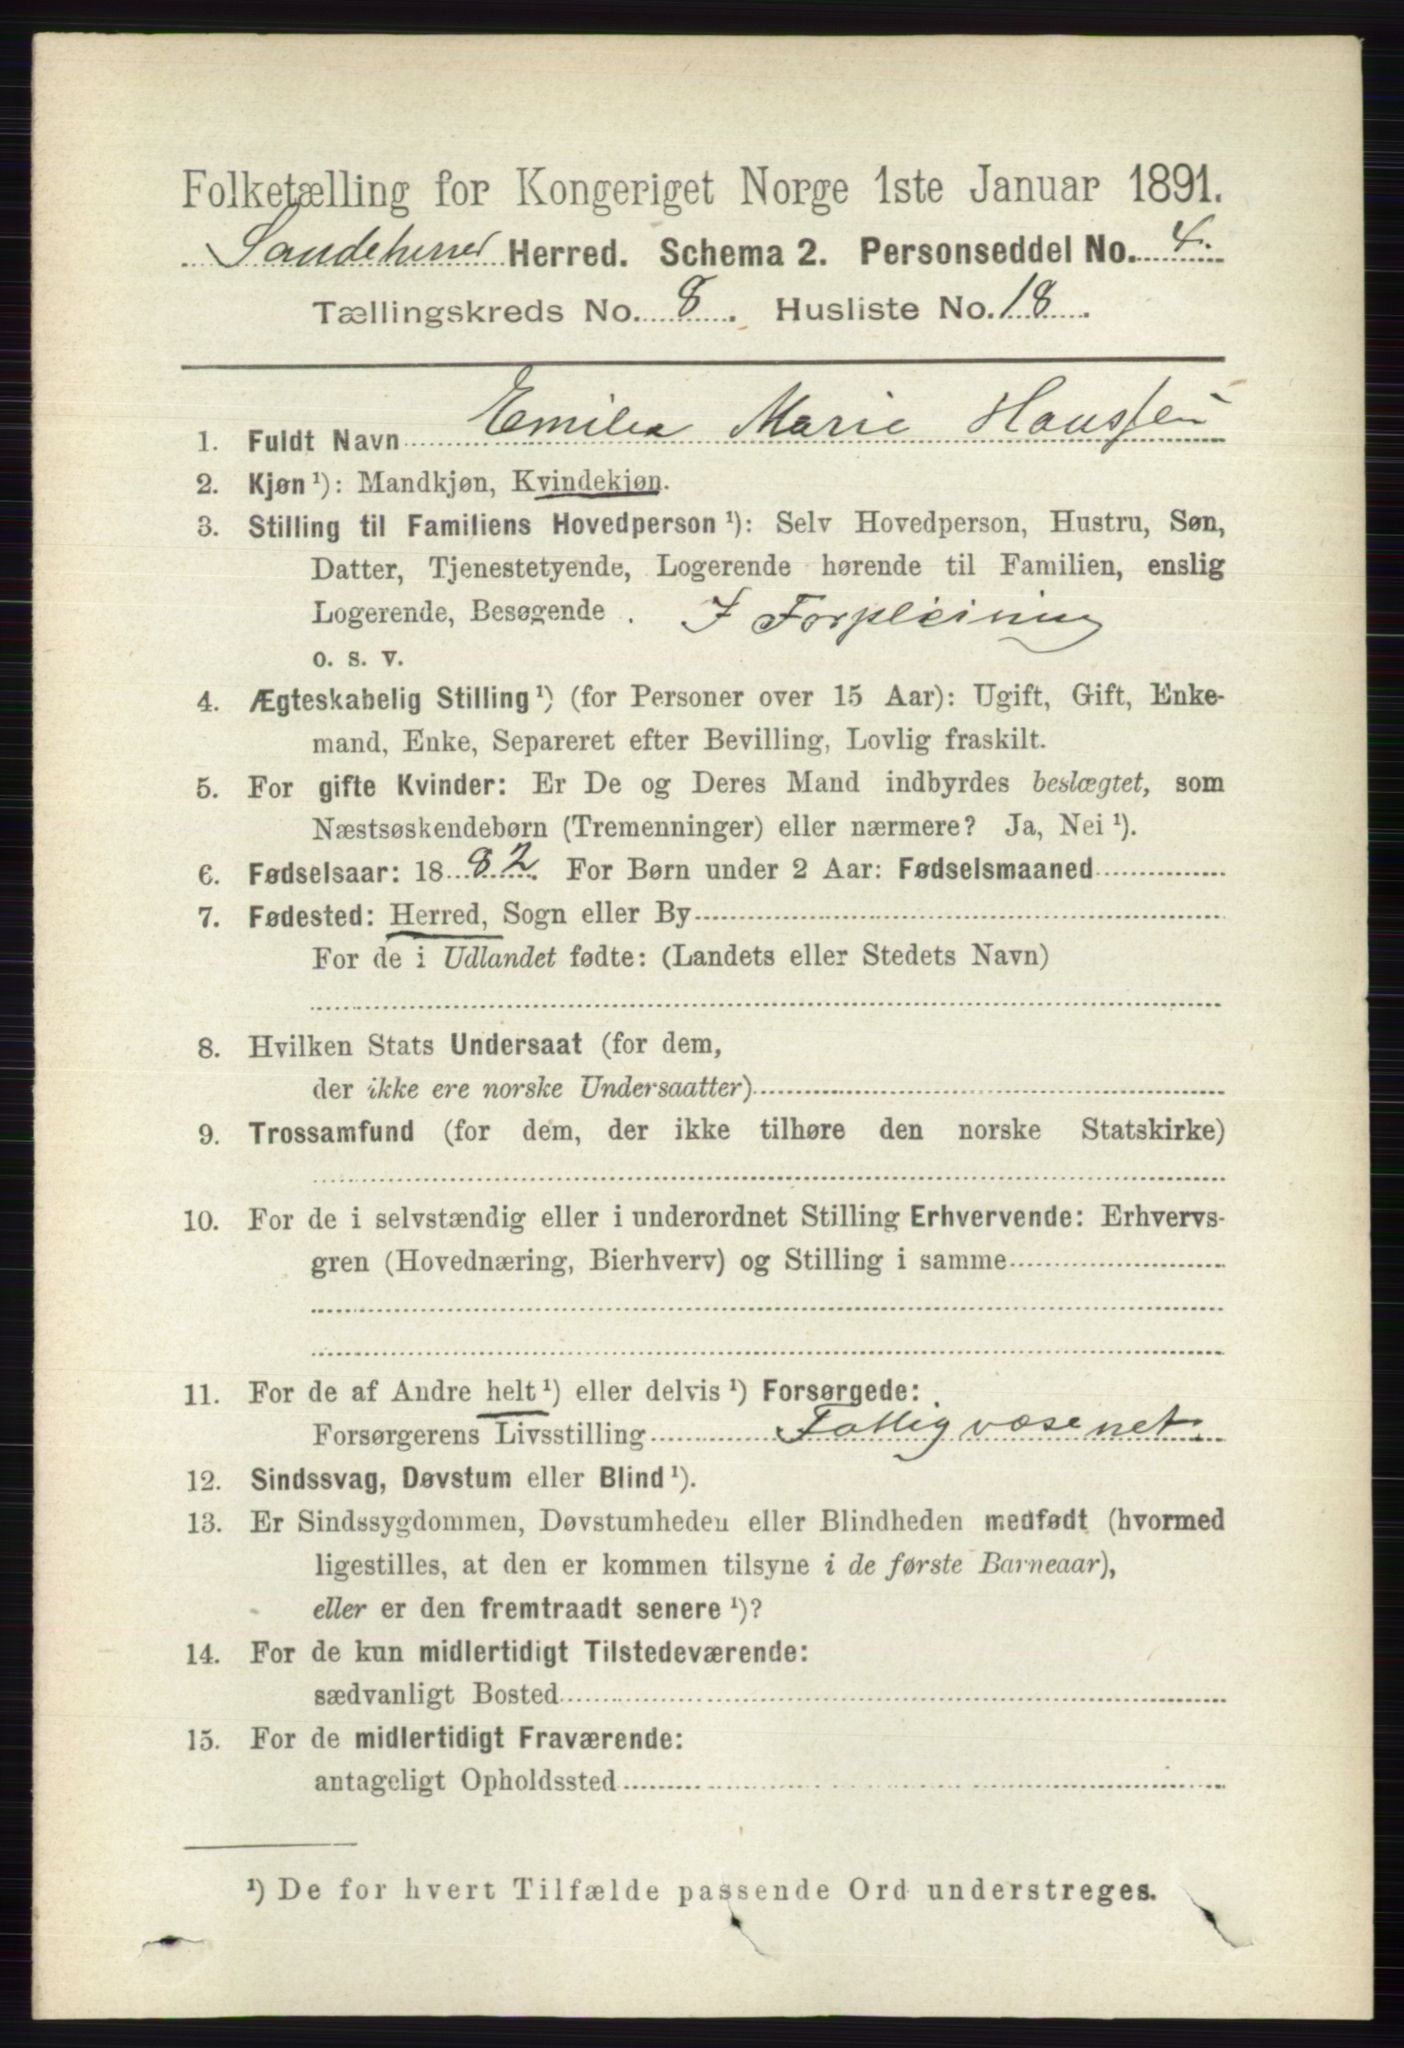 Folketælling for Kongeriget Norge 1ste Januar 1891.
Sandeherred Herred. Schema 2. Personseddel No. 4.
Tællingskreds No. 8. Husliste No. 18.
1. Fuldt Navn Emilia Marie Hanssen
2. Kjøn ¹): Mandkjøn, Kvindekjøn.
3. Stilling til Familiens Hovedperson ¹): Selv Hovedperson, Hustru, Søn,
Datter, Tjenestetyende, Logerende hørende til Familien, enslig
Logerende, Besøgende . I Forpleining
o. s. v.
4. Ægteskabelig Stilling ¹) (for Personer over 15 Aar): Ugift, Gift, Enke-
mand, Enke, Separeret efter Bevilling, Lovlig fraskilt.
5. For gifte Kvinder: Er De og Deres Mand indbyrdes beslægtet, som
Næstsøskendebørn (Tremenninger) eller nærmere? Ja, Nei ¹).
6. Fødselsaar: 18 82. For Børn under 2 Aar: Fødselsmaaned
7. Fødested: Herred, Sogn eller By
For de i Udlandet fødte: (Landets eller Stedets Navn)
8. Hvilken Stats Undersaat (for dem,
der ikke ere norske Undersaatter)
9. Trossamfund (for dem, der ikke tilhøre den norske Statskirke)
10. For de i selvstændig eller i underordnet Stilling Erhvervende: Erhvervs-
gren (Hovednæring, Bierhverv) og Stilling i samme
11. For de af Andre helt ¹) eller delvis ¹) Forsørgede:
Forsørgerens Livsstilling Fattigvæsenet.
12. Sindssvag, Døvstum eller Blind ¹).
13. Er Sindssygdommen, Døvstumheden eller Blindheden medfødt (hvormed
ligestilles, at den er kommen tilsyne i de første Barneaar),
eller er den fremtraadt senere ¹)?
14. For de kun midlertidigt Tilstedeværende:
sædvanligt Bosted
15. For de midlertidigt Fraværende:
antageligt Opholdssted
¹) De for hvert Tilfælde passende Ord understreges.